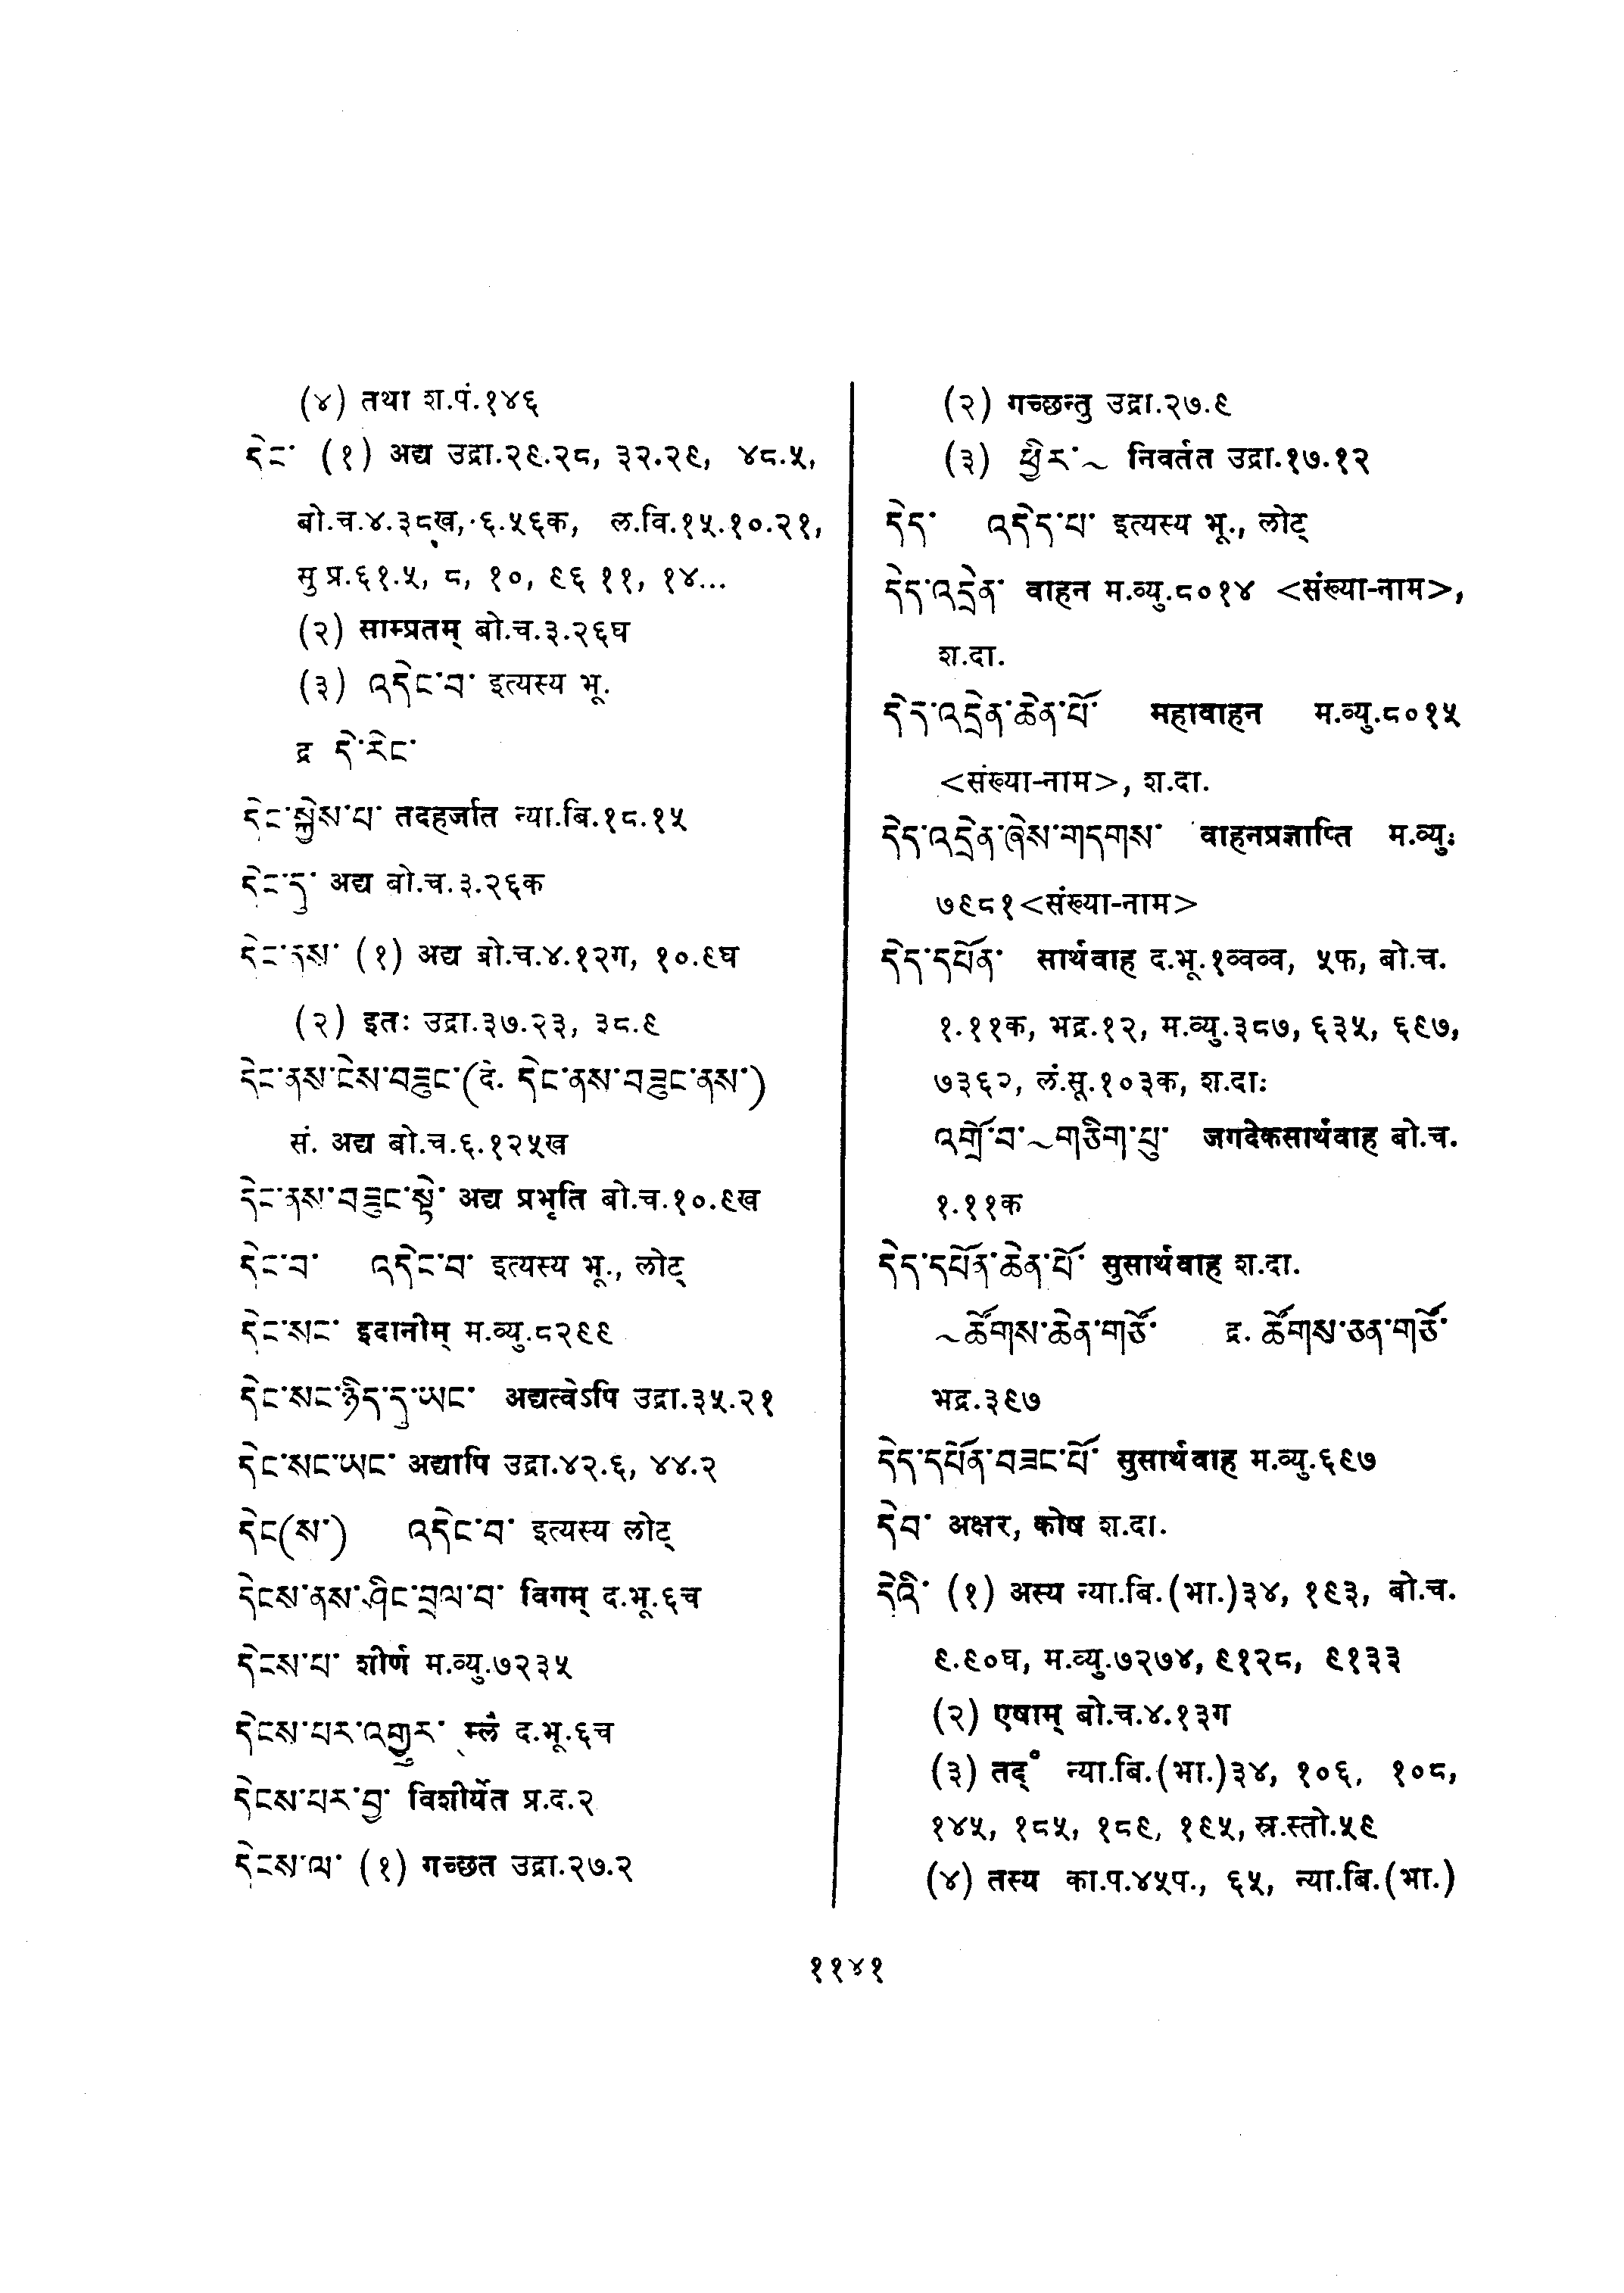 (४) तथा श.पं.१४६
དེང་ (१) अद्य उद्रा.२९.२८, ३२.२९, ४८.५,
बो.च.४.३८ख, ६.५६क, ल.वि.१५.१०.२१,
सु प्र.६१.५, ८, १०, ९६ ११, १४...
(२) साम्प्रतम् बो.च.३.२६घ
(३) འདེང་བ་ इत्यस्य भू.
द्र དེ་རེང་
དེང་སྐྱེས་པ་ तदहर्जात न्या.बि.१८.१५
དེང་དུ་ अद्य बो.च.३.२६क
དེང་ནས་ (१) अद्य बो.च.४.१२ग, १०.९घ
(२) इतः उद्रा.३७.२३, ३८.९
དེང་ནས་ངེས་བཟུང་(दे. དེང་ནས་བཟུང་ནས་)
सं. अद्य बो.च.६.१२५ख
དེང་ནས་བཟུང་སྟེ་ अद्य प्रभृति बो.च.१०.९ख
དེང་བ་ འདེང་བ་ इत्यस्य भू., लोट्
དེང་སང་ इदानीम् म.व्यु.८२९९
དེང་སང་ཉིད་དུ་ཡང་ अद्यत्वेऽपि उद्रा.३५.२१
དེང་སང་ཡང་ अद्यापि उद्रा.४२.६, ४४.२
དེང(ས་) འདེང་བ་ इत्यस्य लोट्
དེངས་ནས་ཤིང་བྲལ་བ་ विगम् द.भू.६च
དེངས་པ་ शीर्ण म.व्यु.७२३५
དེངས་པར་འགྱུར་ म्लै द.भू.६च
དེངས་པར་བྱ་ विशीर्येत प्र.द.२
དེངས་ལ་ (१) गच्छत उद्रा.२७.२
(२) गच्छन्तु उद्रा.२७.९
(३) ཕྱིར་~ निवर्तत उद्रा.१७.१२
དེད་ འདེད་པ་ इत्यस्य भू., लोट्
དེད་འདྲེན་ वाहन म.व्यु.८०१४ <संख्या-नाम>,
श.दा.
དེད་འདྲེན་ཆེན་པོ་ महावाहन म.व्यु.८०१५
<संख्या-नाम>, श.दा.
དེད་འདྲེན་ཞེས་གདགས་ वाहनप्रज्ञाप्ति म.व्यु:
७९८१<संख्या-नाम>
དེད་དཔོན་ सार्थवाह द.भू.१व्वव्व, ५फ, बो.च.
१.११क, भद्र.१२, म.व्यु.३८७, ६३५, ६९७,
७३६२, लं.सू.१०३क, श.दा:
འགྲོ་བ་~གཅིག་པུ་ जगदेकसार्थवाह बो.च.
१.११क
དེད་དཔོན་ཆེན་པོ་ सुसार्थवाह श.दा.
~ཚོགས་ཆེན་གཙོ་ द्र. ཚོགས་ཅན་གཙོ་
भद्र.३९७
དེད་དཔོན་བཟང་པོ་ सुसार्थवाह म.व्यु.६९७
དེབ་ अक्षर, कोष श.दा.
དེའི་ (१) अस्य न्या.बि.(भा.)३४, १९३, बो.च.
९.९०घ, म.व्यु.७२७४, ९१२८, ९१३३
(२) एषाम् बो.च.४.१३ग
(३) तद्° न्या.बि.(भा.)३४, १०६, १०८,
१४५, १८५, १८९, १९५, स्र.स्तो.५९
(४) तस्य का.प.४५प., ६५, न्या.बि.(भा.)
११४१